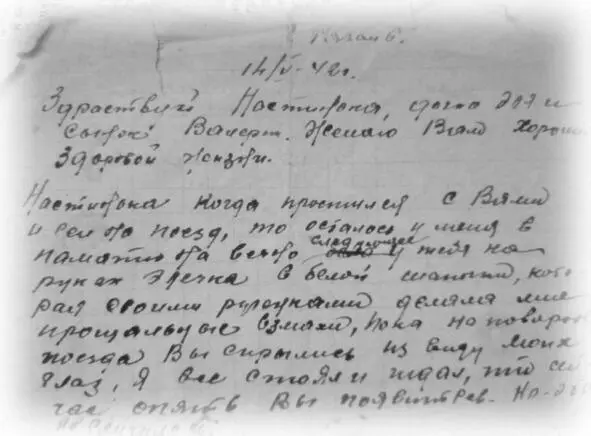 Казань.
14/V-42г.
Здраствуй Настинька, дочка Эля и
сынок Валерик. Желаю Вам хорош
здоровой жизни.
Настинька когда простился с Вами
и сел на поезд, то осталось у меня в
памяти на вечно следующее у тебя на
руках Элечка в белой шапочки, кото
рая своими ручуками делала мне
прощальные взмахи, пока на поворот
поезда Вы скрылись из виду моих
глаз, я все стоял и ждал, что сей
час опять Вы появитесь.